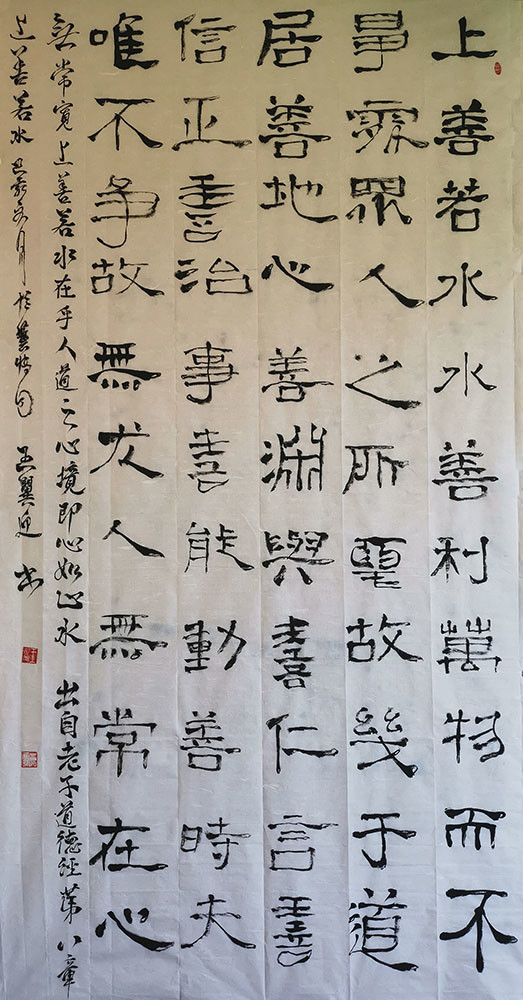 上善若水水善利萬物而不
爭處眾人之所惡故幾于道
居善地心善淵與善仁言善
信正善治事善能動善時夫
唯不争故無尤人無常在心
無常寬上善若水在乎人道之心境即心如止水 出自老子道德经第八章
上善若水 己亥冬月於 王翼 书